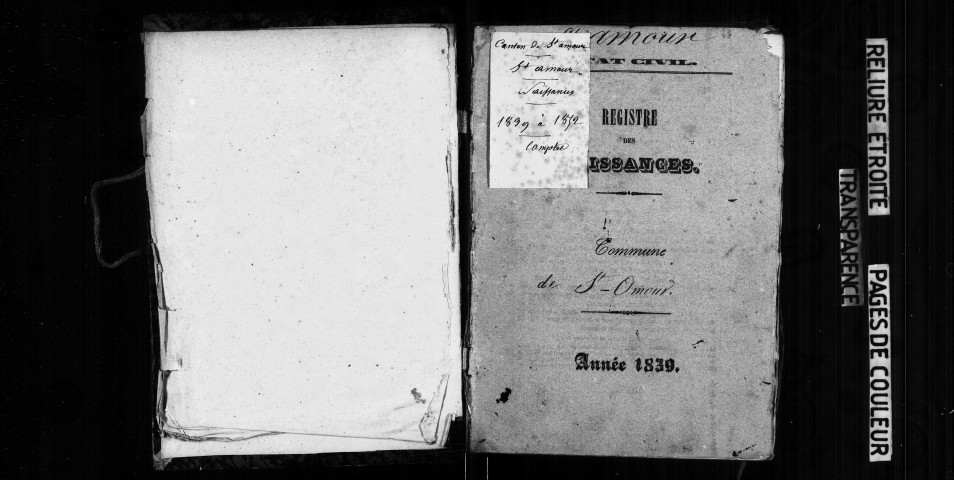 Canton de St amour
St amour
Naissances
1839 à 1872
Complet
amour
ÉTAT CIVIL.
REGISTRE
DES
ISSANCES.
Commune
de St-Omour.
Année 1839.
RELIURE ETROITE
TRANSPARENCE
PAGES DE COULEUR